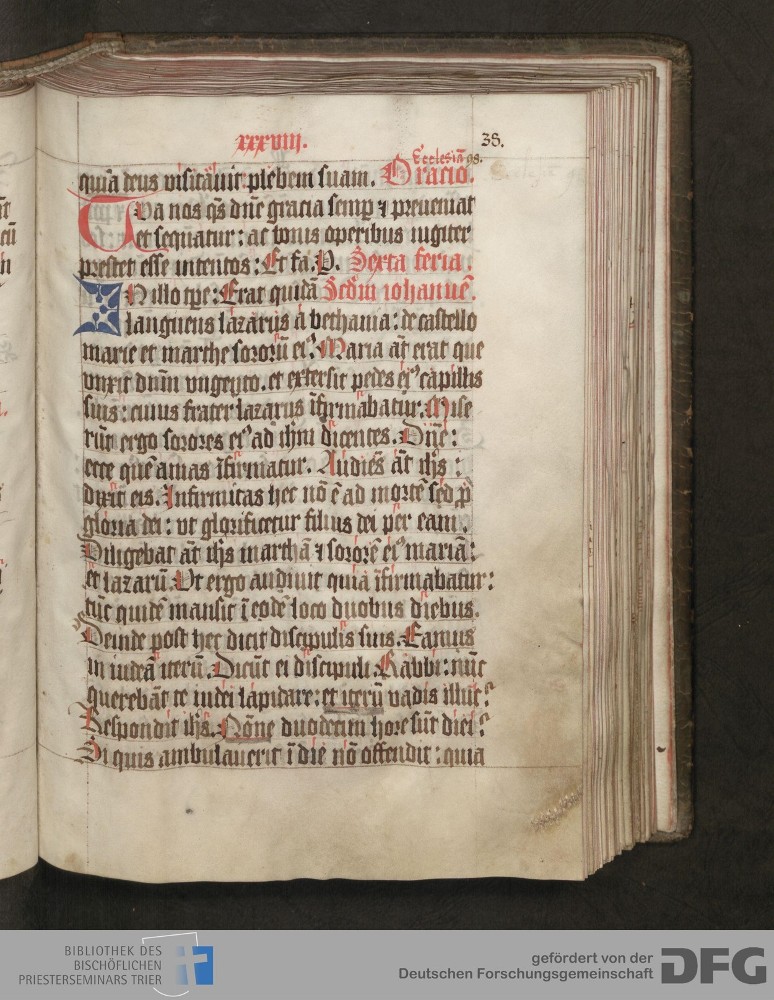 xxxviii.
38.
Ecclesia 98.
quia deus visitauit plebem suam. Oracio.
Tua nos qs dne gracia semp ⁊ preueniat
et sequatur: ac bonis operibus iugiter
prestet esse intentos: Et fa. P. Sexta feria.
IN illo tpe: Erat quidā Scdm iohannē.
languens lazarus a bethania: de castello
marie et marthe sororū eiꝰ. Maria at̄ erat que
vnxit dnm vngento. et extersit pedes eiꝰ capillis
suis: cuius frater lazarus īfirmabatur. Mise
rūt ergo sorores eiꝰ ad ihm dicentes. Dn̄e:
ecce quē amas īfirmatur. Audiēs at̄ ihs:
dixit eis. Infirmitas hec nō ē ad mortē sed p̄
gloria dei: vt glorificetur filius dei per eam.
Diligebat at̄ ihs marthā ⁊ sororē eiꝰ mariā:
et lazarū. Vt ergo audiuit quia īfirmabatur:
tūc quidē mansit ī eodē loco duobus diebus.
Deinde post hec dicit discipulis suis. Eamus
in iudeā iterū. Dicūt ei discipuli. Rabbi: nūc
querebāt te iudei lapidare: et iterū vadis illuc?
Respondit ihs. Nōne duodecim hore sūt diei?
Si quis ambulauerit ī die nō offendit: quia
BIBLIOTHEK DES
BISCHÖFLICHEN
PRIESTERSEMINARS TRIER
gefördert von der
Deutschen Forschungsgemeinschaft DFG